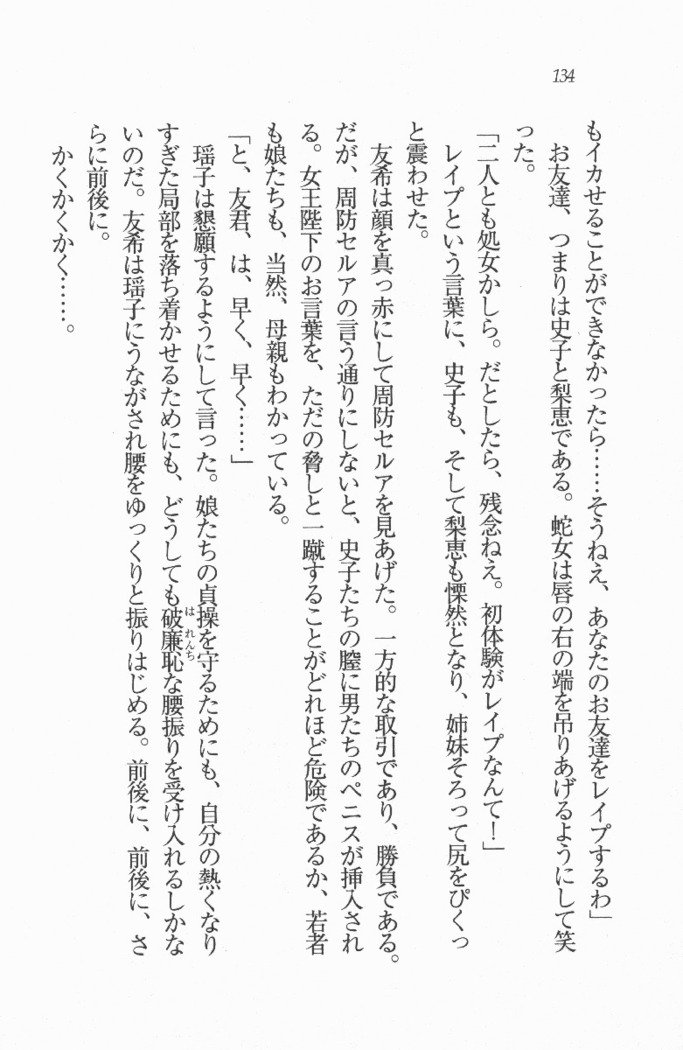 134
もイカせることができなかったら……そうねえ、あなたのお友達をレイプするわ」
お友達、つまりは史子と梨恵である。蛇女は唇の右の端を吊りあげるようにして笑
った。
「二人とも処女かしら。だとしたら、残念ねえ。初体験がレイプなんて！」
レイプという言葉に、史子も、そして梨恵も慄然となり、姉妹そろって尻をぴくっ
と震わせた。
友希は顔を真っ赤にして周防セルアを見あげた。一方的な取引であり、勝負である。
だが、周防セルアの言う通りにしないと、史子たちの膣に男たちのペニスが挿入され
る。女王陛下のお言葉を、ただの脅しと一蹴することがどれほど危険であるか、若者
も娘たちも、当然、母親もわかっている。
「と、友君、は、早く、早く……」
瑶子は懇願するようにして言った。娘たちの貞操を守るためにも、自分の熱くなり
すぎた局部を落ち着かせるためにも、どうしても破廉恥な腰振りを受け入れるしかな
はれんち
いのだ。友希は瑶子にうながされ腰をゆっくりと振りはじめる。前後に、前後に、さ
らに前後に。
かくかくかく……。